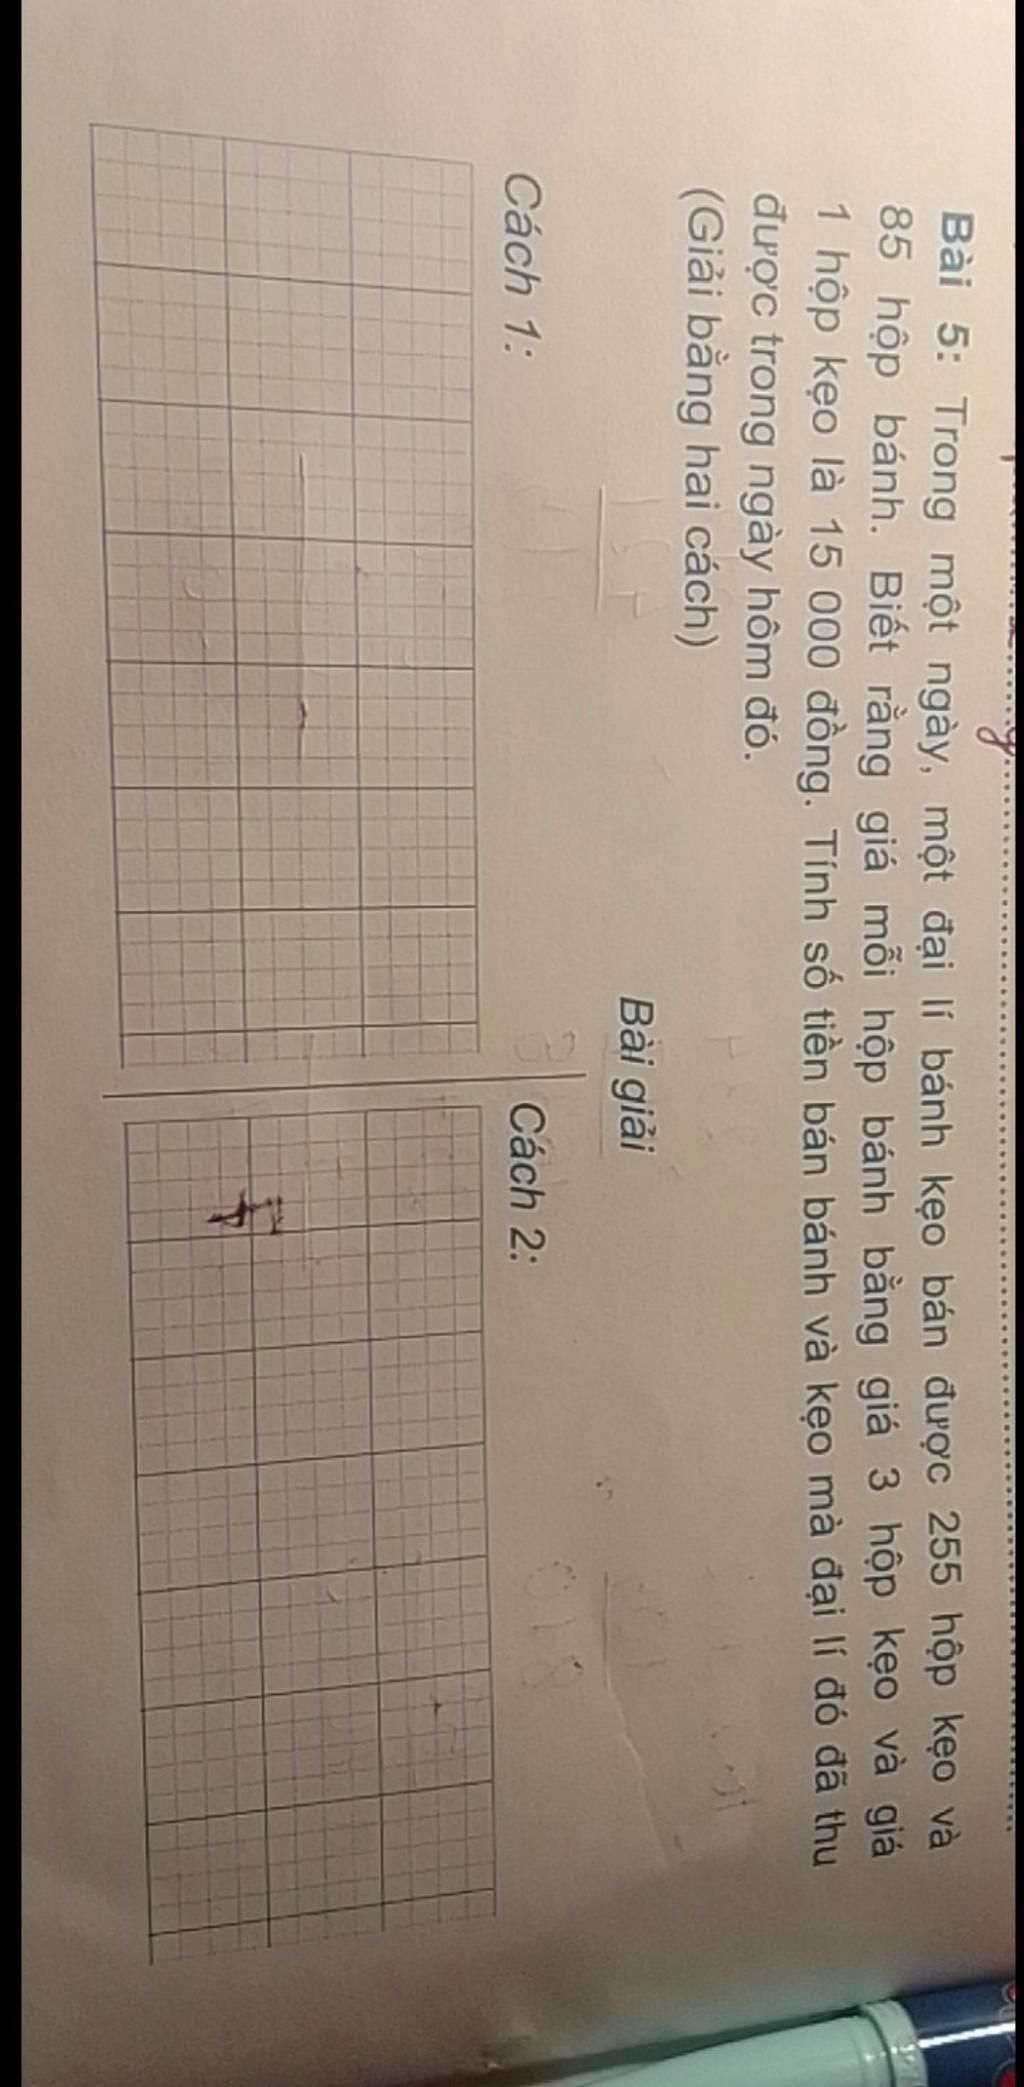 Bài 5: Trong một ngày, một đại lí bánh kẹo bán được 255 hộp kẹo và
85 hộp bánh. Biết rằng giá mỗi hộp bánh bằng giá 3 hộp kẹo và giá
1 hộp kẹo là 15 000 đồng. Tính số tiền bán bánh và kẹo mà đại lí đó đã thu
được trong ngày hôm đó.
(Giải bằng hai cách)
Bài giải
Cách 1:
Cách 2: